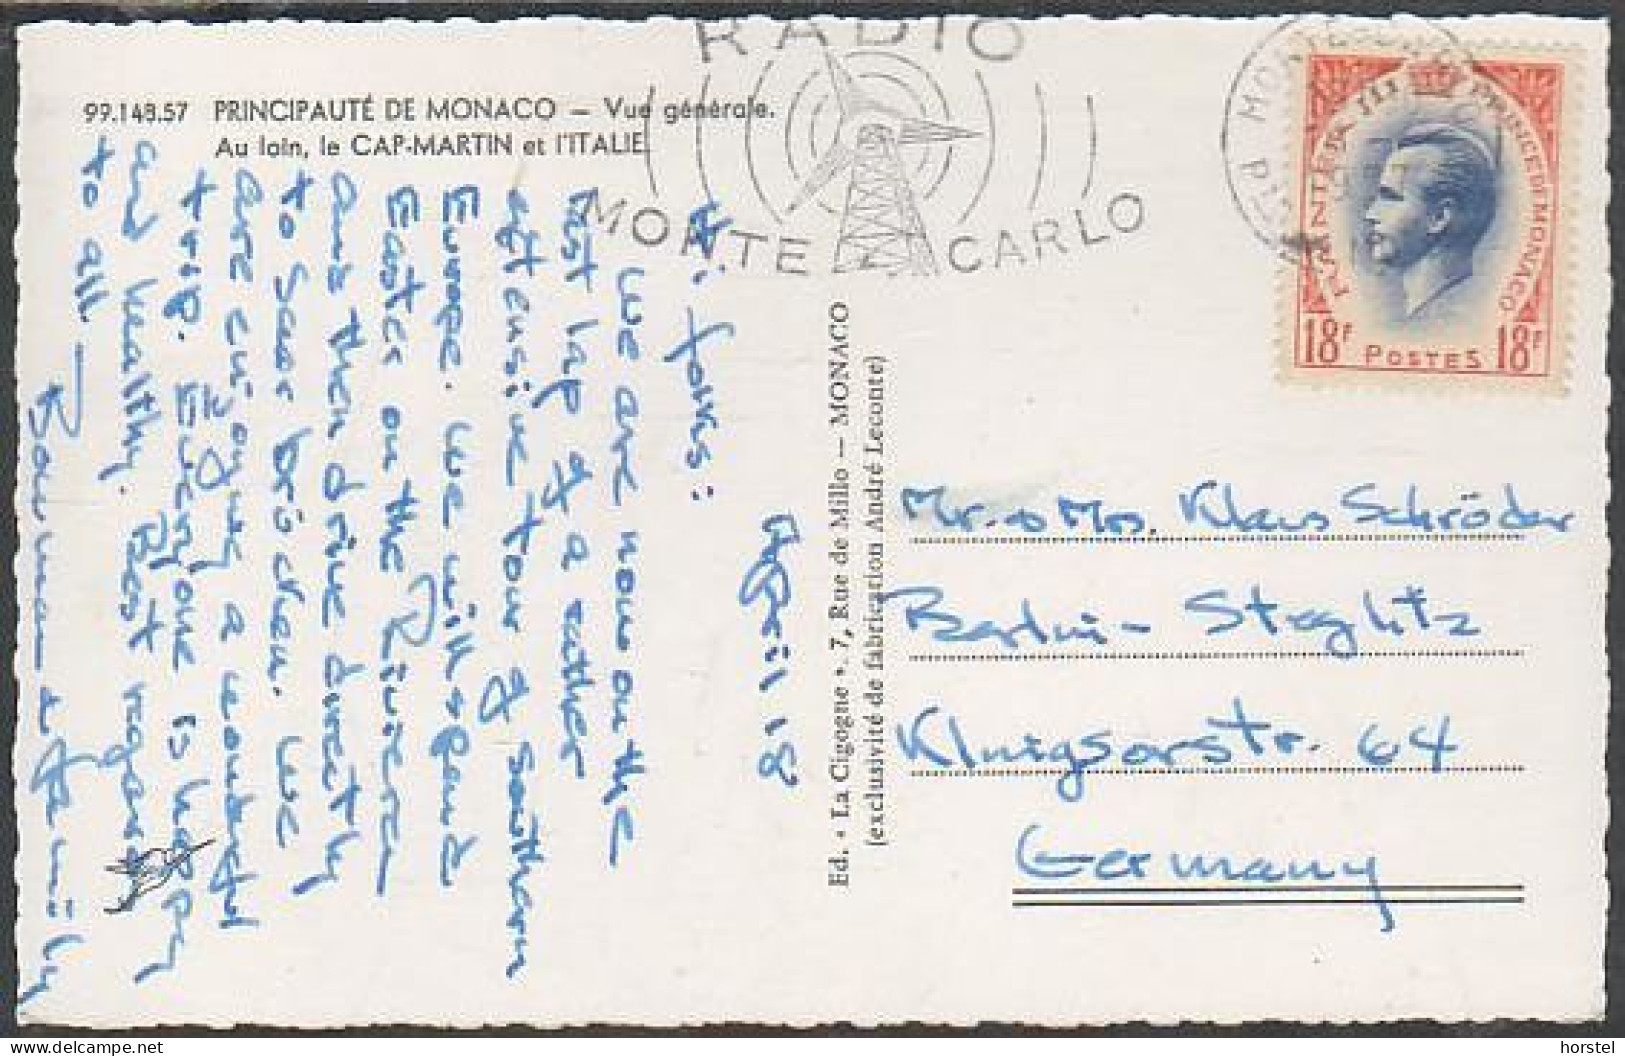 RADIO
MONTE CARLO
99.148.57 PRINCIPAUTÉ DE MONACO – Vue générale.
Au loin, le CAP-MARTIN et l'ITALIE.
RAINIER III PRINCE DE MONACO
18F POSTES 18F
April 18
Hi folks:
We are now on the
last lap of a rather
extensive tour of southern
Europe. We will spend
Easter on the Riviera
and then drive directly
to Saarbrücken. We
are enjoying a wonderful
trip. Everyone is happy
and healthy. Best regards
to all —
Bowman family
Ed. « La Cigogne ». 7, Rue de Millo – MONACO
(exclusivité de fabrication André Leconte)
Mr. & Mrs. Klaus Schröder
Berlin - Steglitz
Klingsorstr. 64
Germany
horstel